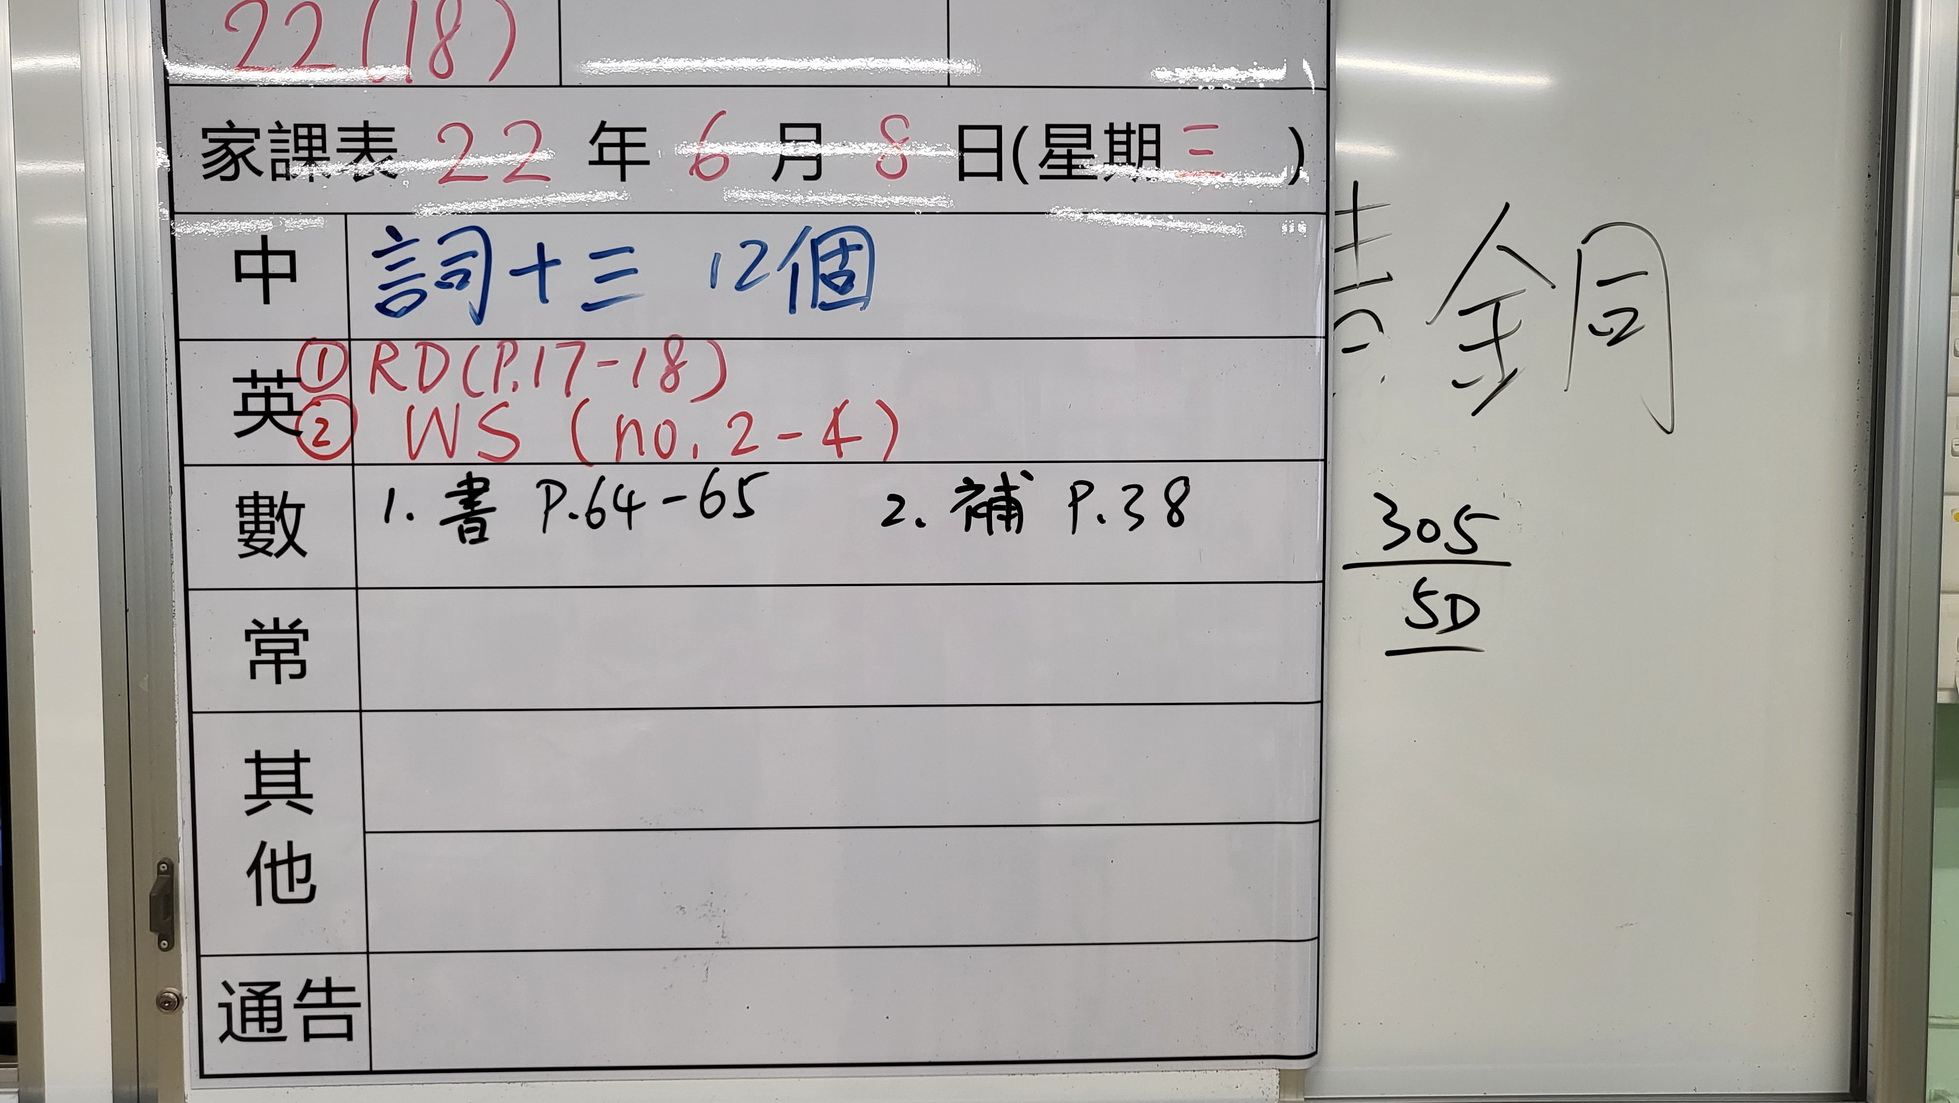 22(18)
家課表 22 年 6 月 8 日(星期三 )
中 詞十三 12個
英 ① RD(P.17-18)
② WS (no. 2-4)
數 1. 書 P.64-65 2. 補 P.38
常
其他
通告
銅
305
5D